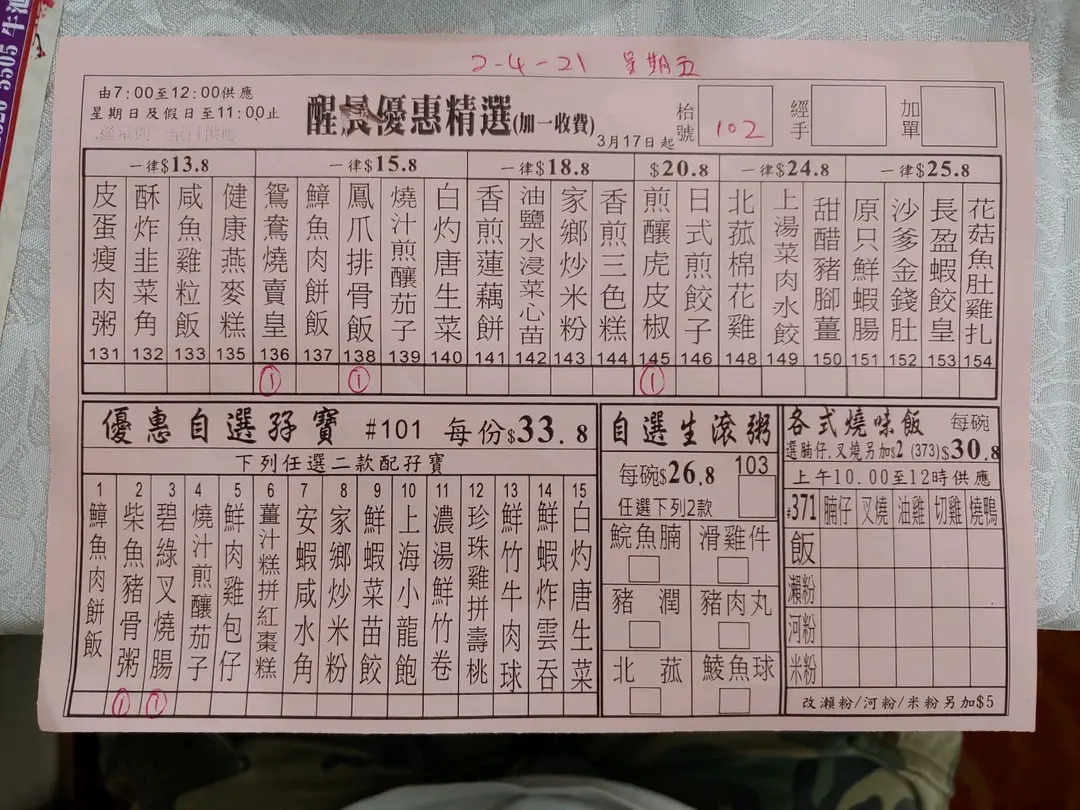 2-4-21 星期五
由7:00至12:00供應
星期日及假日至11:00止
醒晨優惠精選(加一收費)
3月17日起
枱號 102
經手
加單
一律$13.8
皮蛋瘦肉粥 131
酥炸韭菜角 132
咸魚雞粒飯 133
健康燕麥糕 135
一律$15.8
鴛鴦燒賣皇 136 1
鱆魚肉餅飯 137
鳳爪排骨飯 138 1
燒汁煎釀茄子 139
白灼唐生菜 140
一律$18.8
香煎蓮藕餅 141
油鹽水浸菜心苗 142
家鄉炒米粉 143
香煎三色糕 144
$20.8
煎釀虎皮椒 145 1
日式煎餃子 146
一律$24.8
北菰棉花雞 148
上湯菜肉水餃 149
甜醋豬腳薑 150
一律$25.8
原只鮮蝦腸 151
沙爹金錢肚 152
長盈蝦餃皇 153
花菇魚肚雞扎 154
優惠自選孖寶 #101 每份$33.8
下列任選二款配孖寶
1 鱆魚肉餅飯
2 柴魚豬骨粥 1
3 碧綠叉燒腸 1
4 燒汁煎釀茄子
5 鮮肉雞包仔
6 薑汁糕拼紅棗糕
7 安蝦咸水角
8 家鄉炒米粉
9 鮮蝦菜苗餃
10 上海小龍飽
11 濃湯鮮竹卷
12 珍珠雞拼壽桃
13 鮮竹牛肉球
14 鮮蝦炸雲吞
15 白灼唐生菜
自選生滾粥
每碗$26.8 103
任選下列2款
鯇魚腩 滑雞件
豬潤 豬肉丸
北菰 鯪魚球
各式燒味飯 每碗
選腩仔.叉燒另加$2 (373)$30.8
上午10.00至12時供應
#371 腩仔 叉燒 油雞 切雞 燒鴨
飯
瀨粉
河粉
米粉
改瀨粉/河粉/米粉另加$5